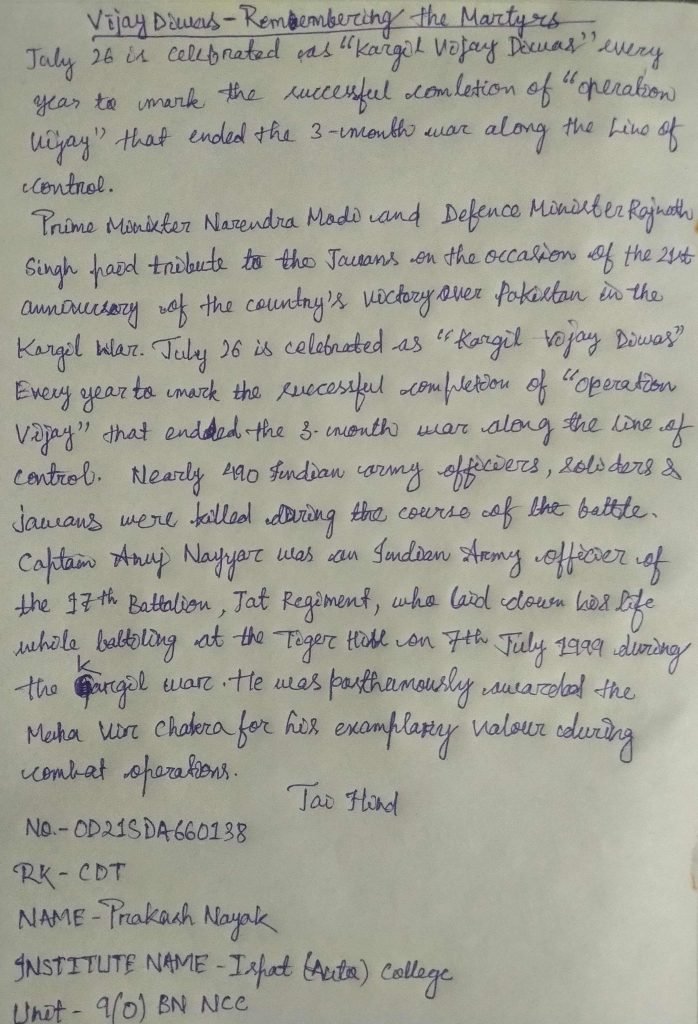 Vijay Diwas - Remembering the Martyrs
July 26 is celebrated as "Kargil Vijay Diwas" every
year to mark the successful comletion of "operation
Vijay" that ended the 3-month war along the Line of
Control.
Prime Minister Narendra Modi and Defence Minister Rajnath
Singh paid tribute to the Jawans on the occasion of the 21st
anniversary of the country's victory over Pakistan in the
Kargil War. July 26 is celebrated as "Kargil Vijay Diwas"
Every year to mark the successful completion of "operation
Vijay" that ended the 3-month war along the line of
control. Nearly 490 Indian army officiers, soliders &
jawans were killed during the course of the battle.
Captain Anuj Nayyar was an Indian Army officier of
the 17th Battalion, Jat Regiment, who laid down his life
while battoling at the Tiger Hill on 7th July 1999 during
the Kargil war. He was posthumously awarded the
Maha Vir Chakra for his examplary valour during
combat operations.
Jai Hind
NO.- OD21SDA660138
RK - CDT
NAME - Prakash Nayak
INSTITUTE NAME - Ispat (Auto) College
Unit - 9(O) BN NCC